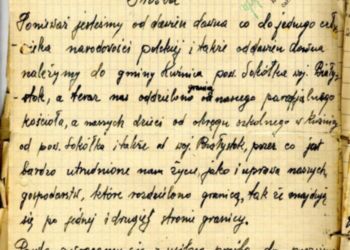 Ponieważ jesteśmy od dawien dawna co do jednego czło-
wieka narodowości polskiej i także oddawien dawna
należymy do gminy Kuźnica pow. Sokółka woj. Biały-
stok, a teraz nas oddzielono granicą od naszego parafjalnego
kościoła, a naszych dzieci od okręgu szkolnego w Kuźnicy
od pow. Sokółka i także od woj. Białystok, przez co jest
bardzo utrudnione nam życie, jako i uprawa naszych
gospodarstw, które rozdzielono granicą, tak że znajdują
się po jednej i drugiej stronie granicy.